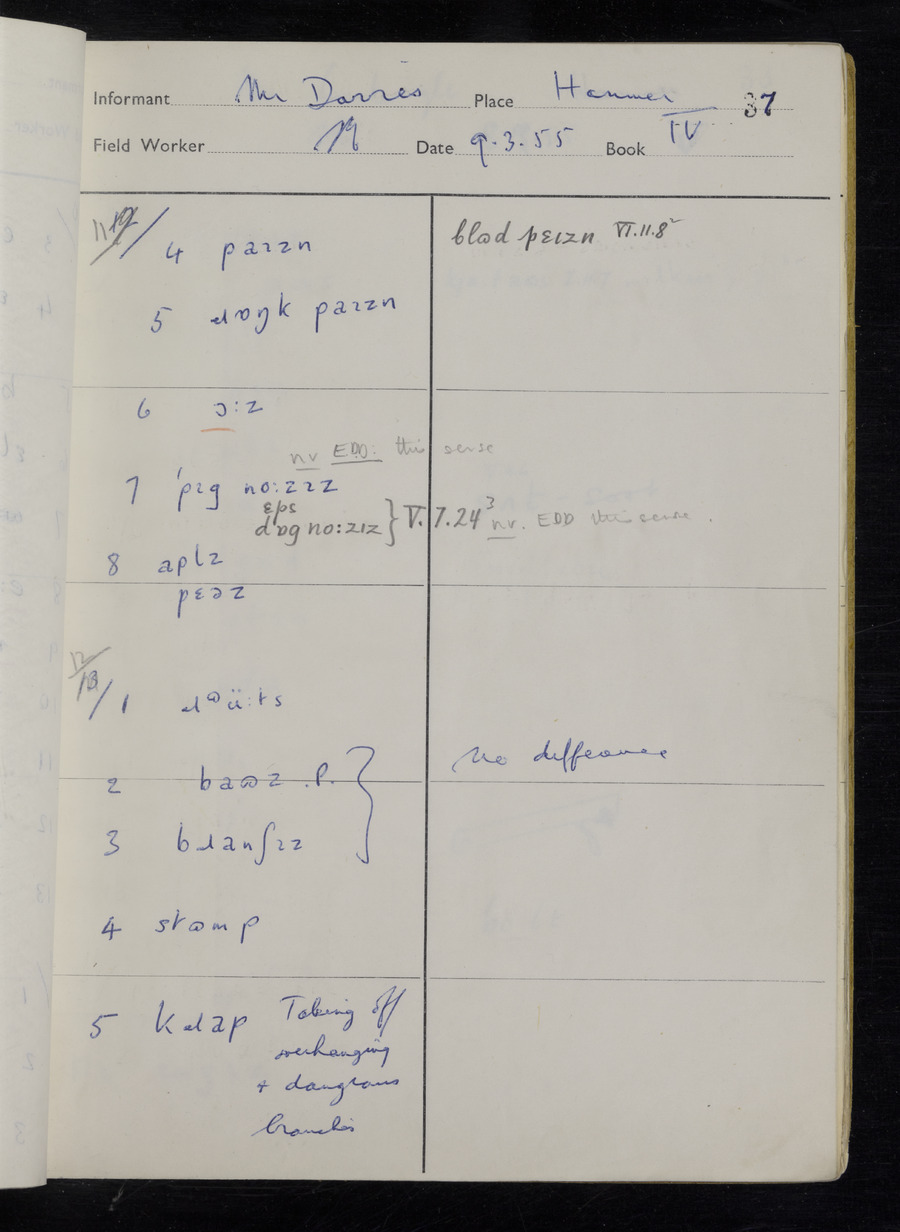 Informant Mr Davies Place Hanmer 37
Field Worker Date 9.3.55 Book IV
12/ 4 pɑɪzn blɷd pɛɪzn VI.11.8
5 ɹɒŋk pɑɪzn
6 ɔ:z
nv EDD: this sense
7 ˈpɪg no:zɪz
ɛps
dɒg no:zɪz } V.7.24³ nv. EDD this sense.
8 aplz
pɛəz
12
13/ 1 ɹɷü:ts
No difference
2 baɷz .P. }
3 bɹanʃɪz
4 stɷmp
5 kɹap Taking off
overhanging
+ dangrous
branches